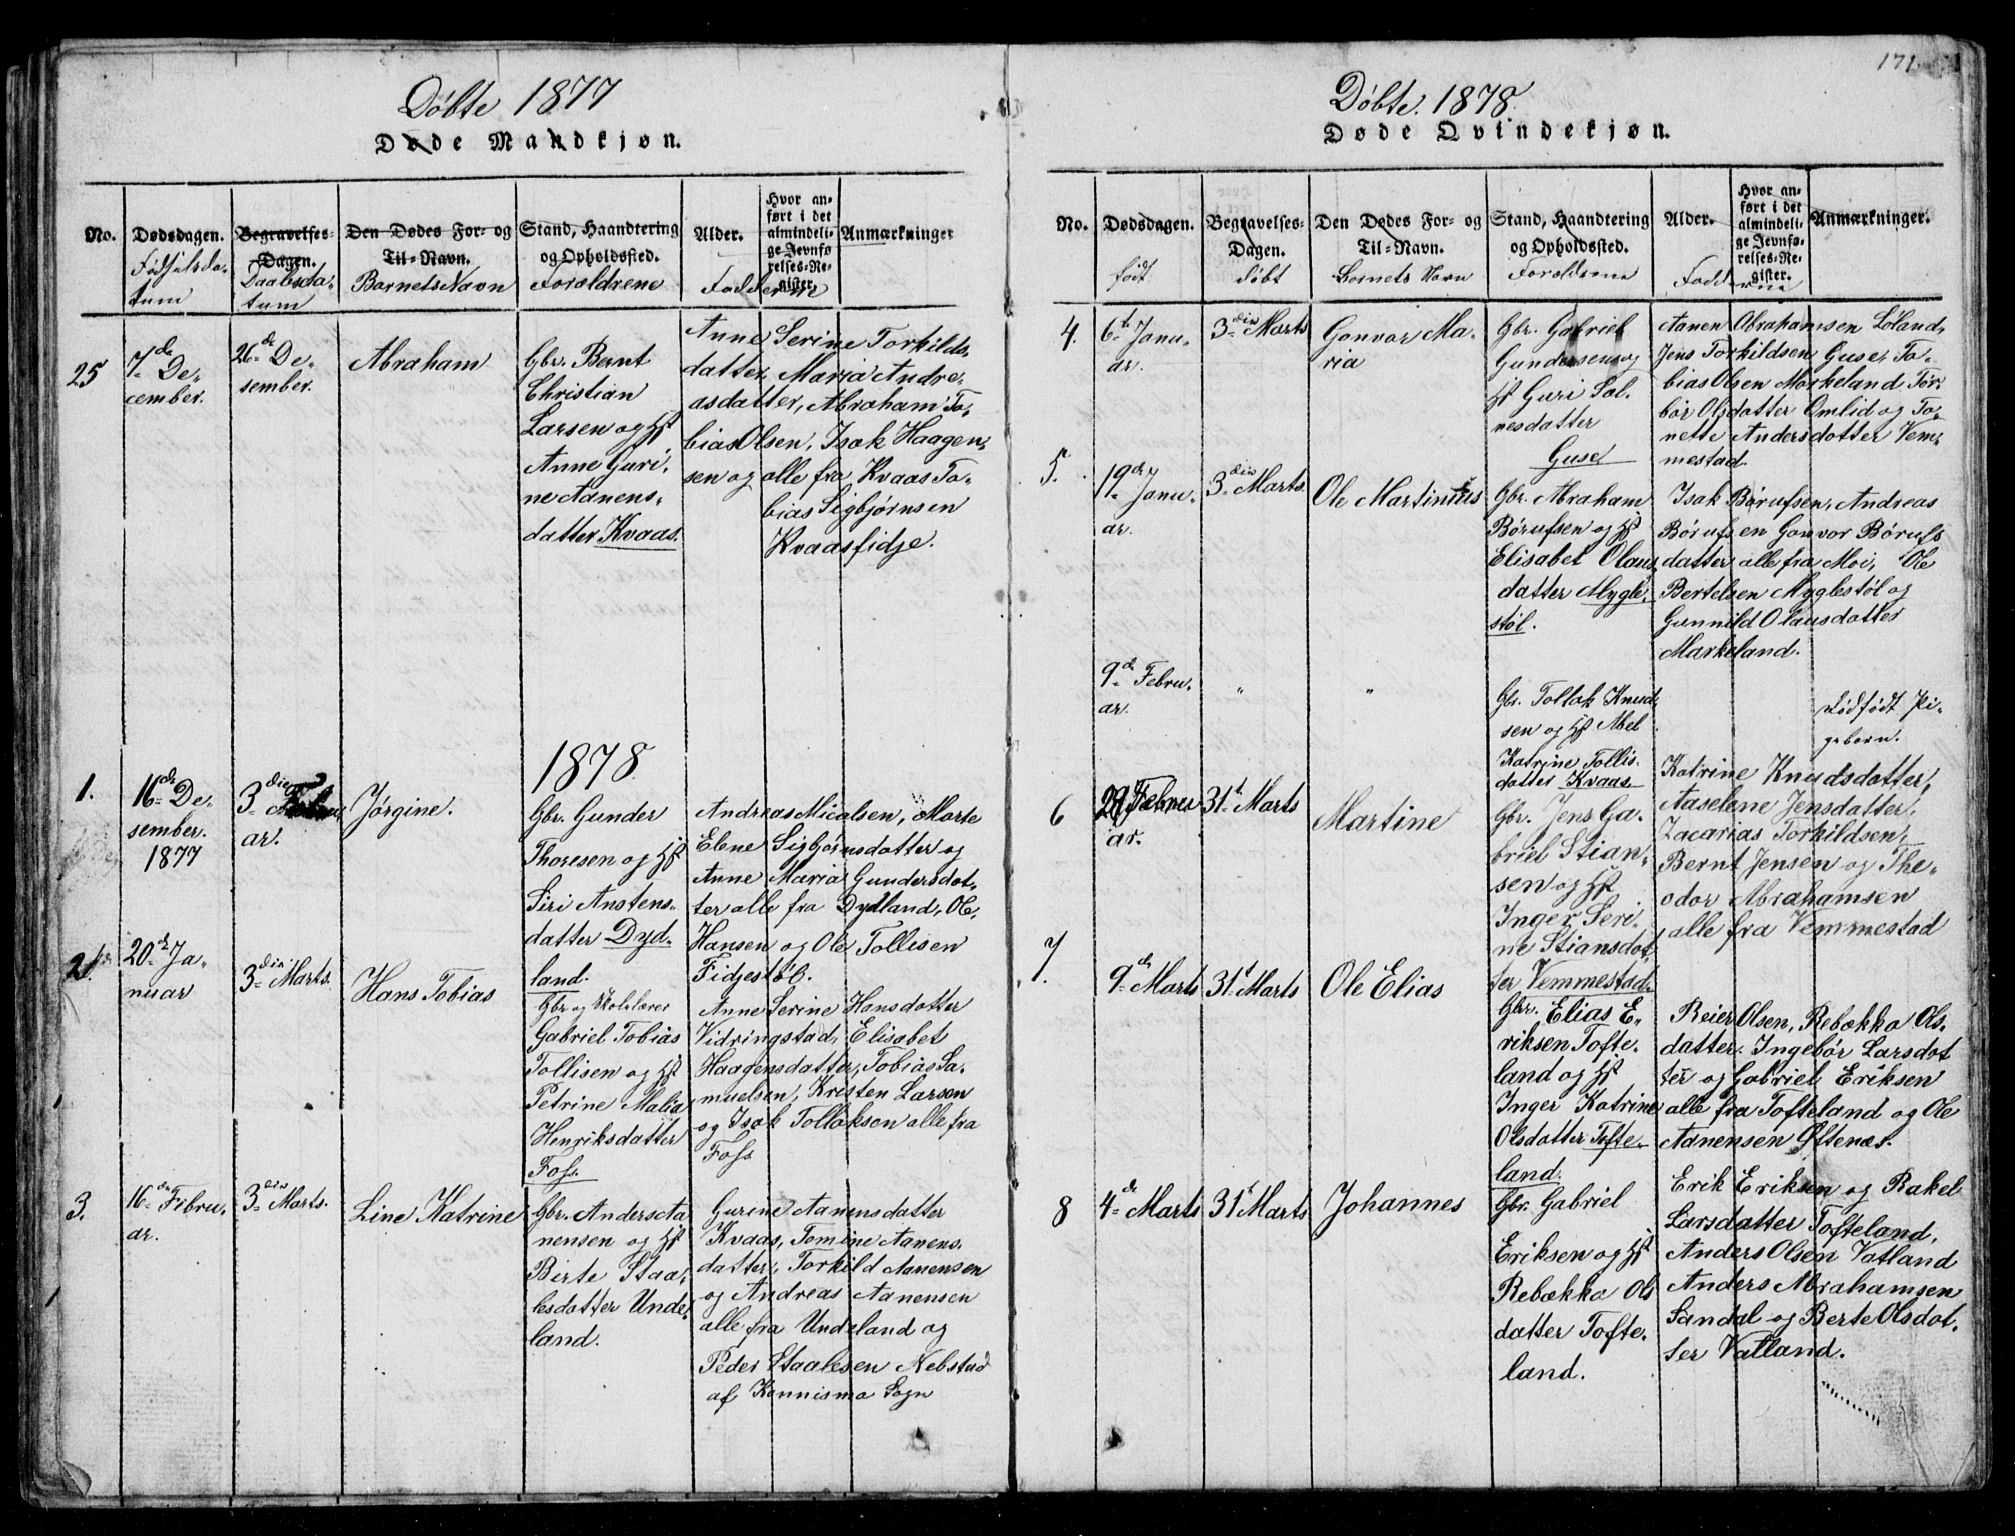 171
Døbte 1877
Døde Mandkjøn.
No.
Dødsdagen.
Fødselsda-
tum
Begravelses-
Dagen.
Daabsda-
tum
Den Dødes For- og
Til-Navn.
Barnets Navn
Stand, Haandtering
og Opholdsted.
Forældrene
Alder.
Hvor an-
ført i det
almindeli-
ge Jevnfø
relses-Re-
gister.
Fadderne
Anmærkninger
25
7de De-
cember.
26de De-
sember.
Abraham
Gbr. Bernt
Christian
Larsen og Hst
Anne Guri-
ne Aanens-
datter Kvaas.
Anne Serine Torkilds-
datter, Maria Andre-
asdatter, Abraham To-
bias Olsen, Isak Haagen-
sen og alle fra Kvaas To-
bias Sigbjørnsen
Kvaasfidje.
1878
1.
16de De-
sember.
1877
3die
ar.
Jørgine.
Gbr. Gunder
Thoresen og Hst
Siri Anstens-
datter Dyd-
land.
Andreas Micalsen, Marte
Elene Sigbjørnsdatter og
Anne Maria Gundersdat-
ter alle fra Dydland, Ole
Hansen og Ole Tollisen
Fidjestøl.
2
20de Ja-
nuar
3die Marts.
Hans Tobias
Gbr og Skolelærer
Gabriel Tobias
Tollisen og Hst
Petrine Malia
Henriksdatter
Foss.
Anne Serine Hansdatter
Vidringstad, Elisabet
Haagensdatter, Tobias Sa-
muelsen, Kristen Larsen
og Isak Tollaksen alle fra
Foss
3.
16de Febru-
ar.
3die Marts.
Line Katrine
Gbr. Anders Aa
nensen og Hst
Birte Staa-
lesdatter Unde-
land.
Gurine Aanensdatter
Kvaas, Tomine Aanens-
datter, Torkild Aanensen
og Andreas Aanensen
alle fra Undeland og
Peder Staalesen Nebstad
af Konnismo Sogn
Døbte. 1878.
Døde Qvindekjøn.
No.
Dødsdagen.
født
Begravelses-
Dagen.
døbt
Den Dødes For- og
Til-Navn.
Barnets Navn
Stand, Haandtering
og Opholdsted.
Forældrene
Alder.
Hvor an-
ført i det
almindeli-
ge Jevnfø-
relses-Re-
gister.
Fadderne
Anmærkninger.
4.
6te Janu-
ar.
3die Marts
Gonvor Ma-
ria
Gbr. Gabriel
Gundersen og
Hst Guri Sal-
vesdatter
Guse
Aanen Abrahamsen Løland,
Jens Torkildsen Guse, To-
bias Olsen Mørkeland Tor-
bør Olsdatter Omlid og To-
nette Andersdatter Vem-
mestad.
5.
19de Janu-
ar.
3die Marts.
Ole Martinius
Gbr. Abraham
Børufsen og Hst
Elisabet Olaus-
datter Mygle-
støl.
Isak Børufsen, Andreas
Børufsen Gonvor Børufs
datter alle fra Moi, Ole
Bertelsen Myglestøl og
Gunnild Olausdatter
Markeland.
9de Febru-
ar.
"
"
Gbr. Tollak Knud-
sen og Hst Abel
Katrine Tollis-
datter Kvaas.
Dødfødt Pi-
gebarn.
6
ar.
31te Marts
Martine
Gbr. Jens Ga-
briel Stian-
sen og Hst
Inger Seri-
ne Stiansdat-
ter Vemmestad.
Katrine Knudsdatter,
Aaselene Jensdatter,
Zacarias Torkildsen,
Bernt Jensen og The-
odor Abrahamsen
alle fra Vemmestad
7.
9de Marts
31te Marts
Ole Elias
Gbr. Elias E-
riksen Tofte-
land og Hst
Inger Katrine
Olsdatter Tofte-
land.
Reier Olsen, Rebækka Ols-
datter Ingebør Larsdat
ter og Gabriel Eriksen
alle fra Tofteland og Ole
Aanensen Øftenes.
8
4de Marts
31te Marts
Johannes
Gbr. Gabriel
Eriksen og Hst
Rebækka Ols
datter Tofte-
land.
Erik Eriksen og Rakel
Larsdatter Tofteland,
Anders Olsen Vatland
Anders Abrahamsen
Sandal og Berte Olsdat-
ter Vatland.